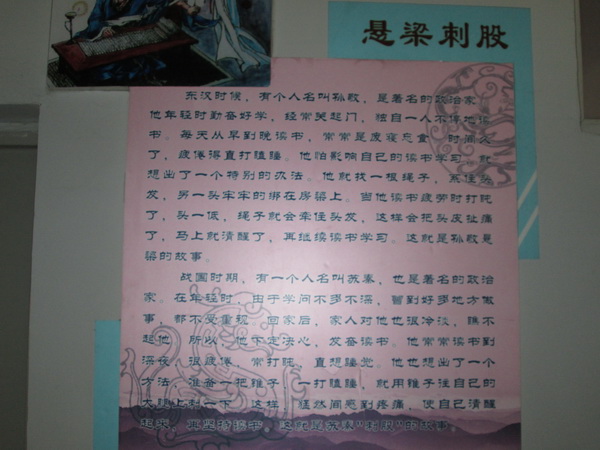 悬梁刺股
东汉时候，有个人名叫孙敬，是著名的政治家。
他年轻时勤奋好学，经常关起门，独自一人不停地读
书。每天从早到晚读书，常常是废寝忘食。时间久
了，疲倦得直打瞌睡。他怕影响自己的读书学习，就
想出了一个特别的办法。他就找一根绳子，系住头
发，另一头牢牢的绑在房梁上。当他读书疲劳时打盹
了，头一低，绳子就会牵住头发，这样会把头皮扯痛
了，马上就清醒了，再继续读书学习。这就是孙敬悬
梁的故事。
战国时期，有一个人名叫苏秦，也是著名的政治
家。在年轻时，由于学问不多不深，曾到好多地方做
事，都不受重视。回家后，家人对他也很冷淡，瞧不
起他。所以，他下定决心，发奋读书。他常常读书到
深夜，很疲倦，常打盹，直想睡觉。他也想出了一个
方法，准备一把锥子，一打瞌睡，就用锥子往自己的
大腿上刺一下。这样，猛然间感到疼痛，使自己清醒
起来，再坚持读书。这就是苏秦"刺股"的故事。